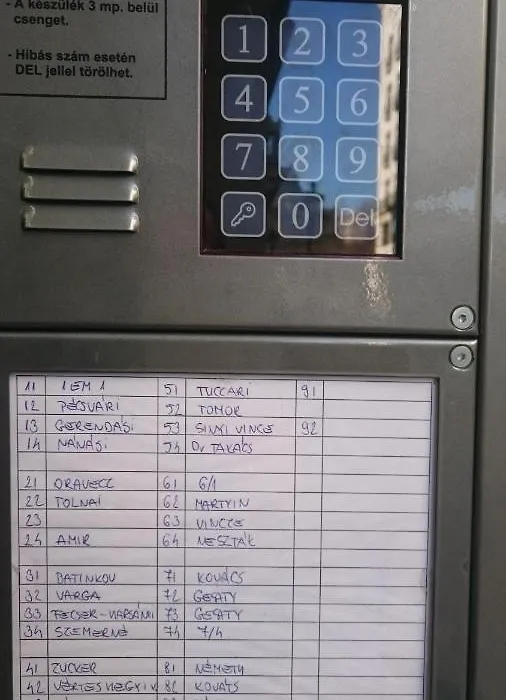 - A készülék 3 mp. belül
csenget.
- Hibás szám esetén
DEL jellel törölhet.
1 2 3
4 5 6
7 8 9
0 Del
11 1 EM 1 51 TUCCARI 91
12 PÉCSVÁRI 52 TOMOR
13 GERENDÁSI 53 VINCE 92
14 NÁNÁSI 54 Dr TAKÁCS
21 ORAVECC 61 6/1
22 TOLNAI 62 MARTYIN
23 63 VINCZE
24 AMIR 64 NESZTÁK
31 BATINKOV 71 KOVÁCS
32 VARGA 72 GERTY
33 FECSER-HARSÁNYI 73 GERTY
34 SZEMERNÉ 74 7/4
41 ZUCKER 81 NÉMETH
42 VÉRTESHEGYI V. 82 KOVÁTS